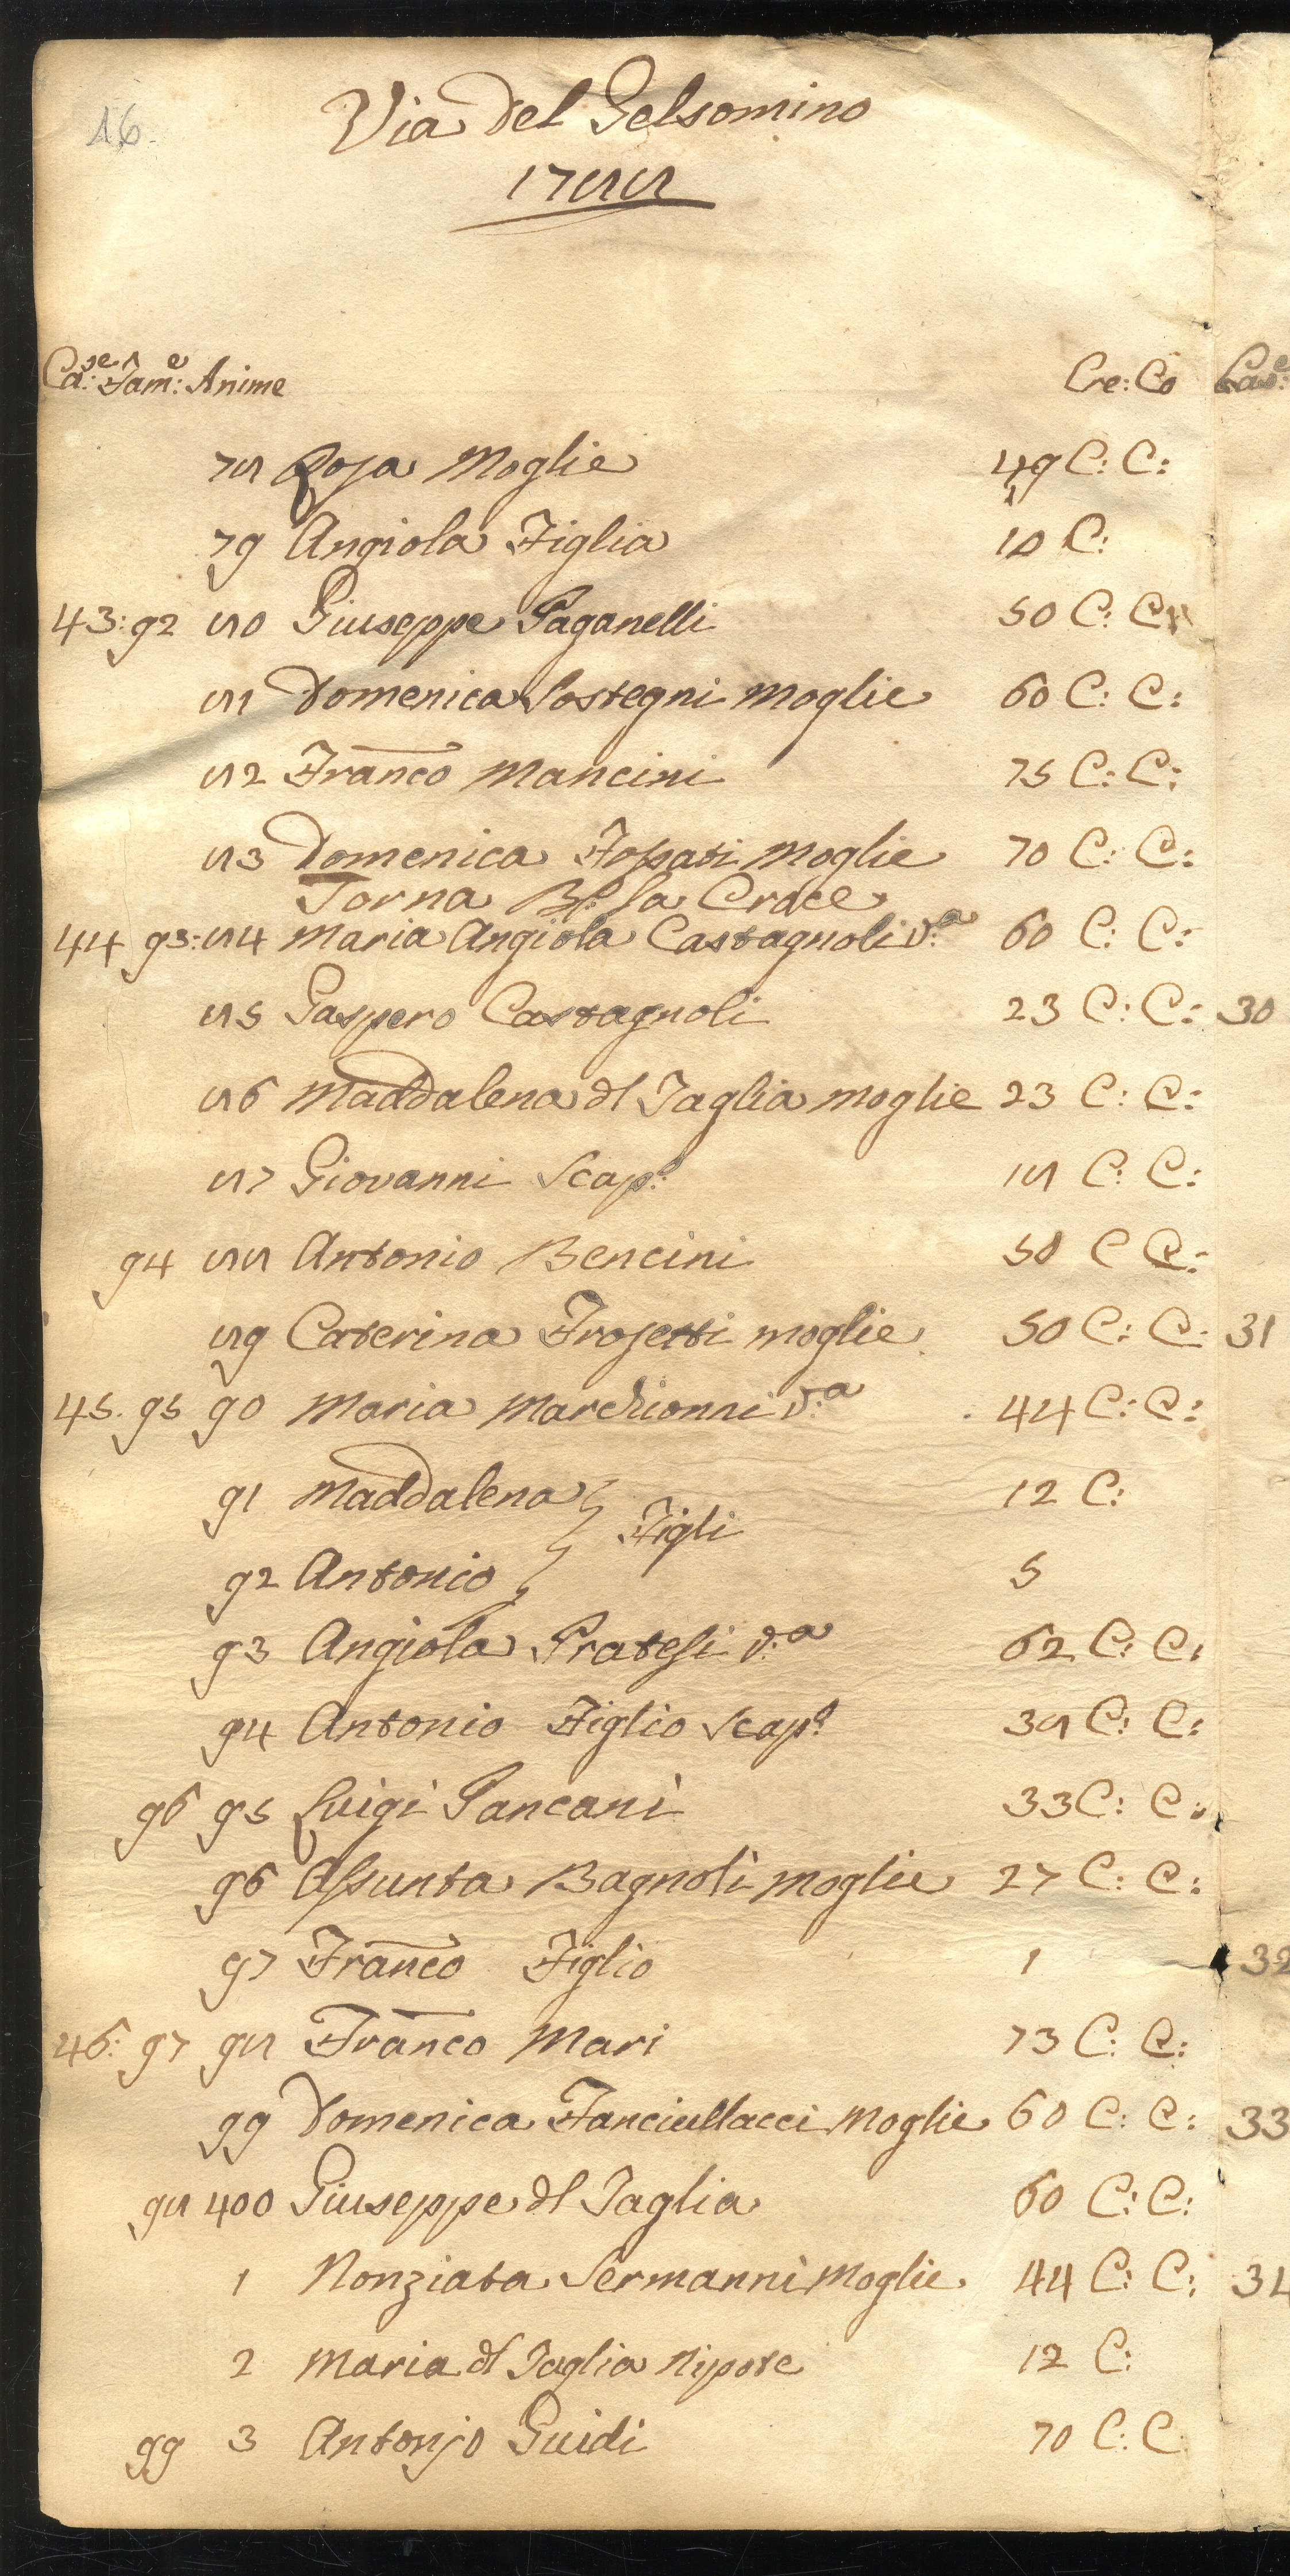 16.
Via del Gelsomino
1788
Ca:se Fam:e Anime Cre: Co Cas:e
78 Rosa Moglie 49 C: C:
79 Angiola Figlia 10 C:
43: 92 80 Giuseppe Paganelli 50 C: C:
81 Domenica Sostegni Moglie 60 C: C:
82 Franco Mancini 75 C: C:
83 Domenica Fossati Moglie 70 C: C:
Torna la Croce
44 93: 84 Maria Angiola Castagnoli V:a 60 C: C:
85 Gaspero Castagnoli 23 C: C: 30
86 Maddalena dl Taglia moglie 23 C: C:
87 Giovanni Scap:o 18 C: C:
94 88 Antonio Bencini 50 C C:
89 Caterina Frosetti moglie 50 C: C: 31
45. 95 90 Maria Marchionni V:a 44 C: C:
91 Maddalena 12 C:
Figli
92 Antonio 5
93 Angiola Pratesi V:a 62 C: C:
94 Antonio Figlio Scap:o 38 C: C:
96 95 Luigi Pancani 33 C: C:
96 Assunta Bagnoli moglie 27 C: C:
97 Franco Figlio 1 32
46: 97 98 Franco Mari 73 C: C:
99 Domenica Fanciullacci Moglie 60 C: C: 33
98 400 Giuseppe dl Taglia 60 C: C:
1 Nonziata Sermanni Moglie 44 C: C: 34
2 Maria dl Taglia Nipote 12 C:
99 3 Antonjo Guidi 70 C: C